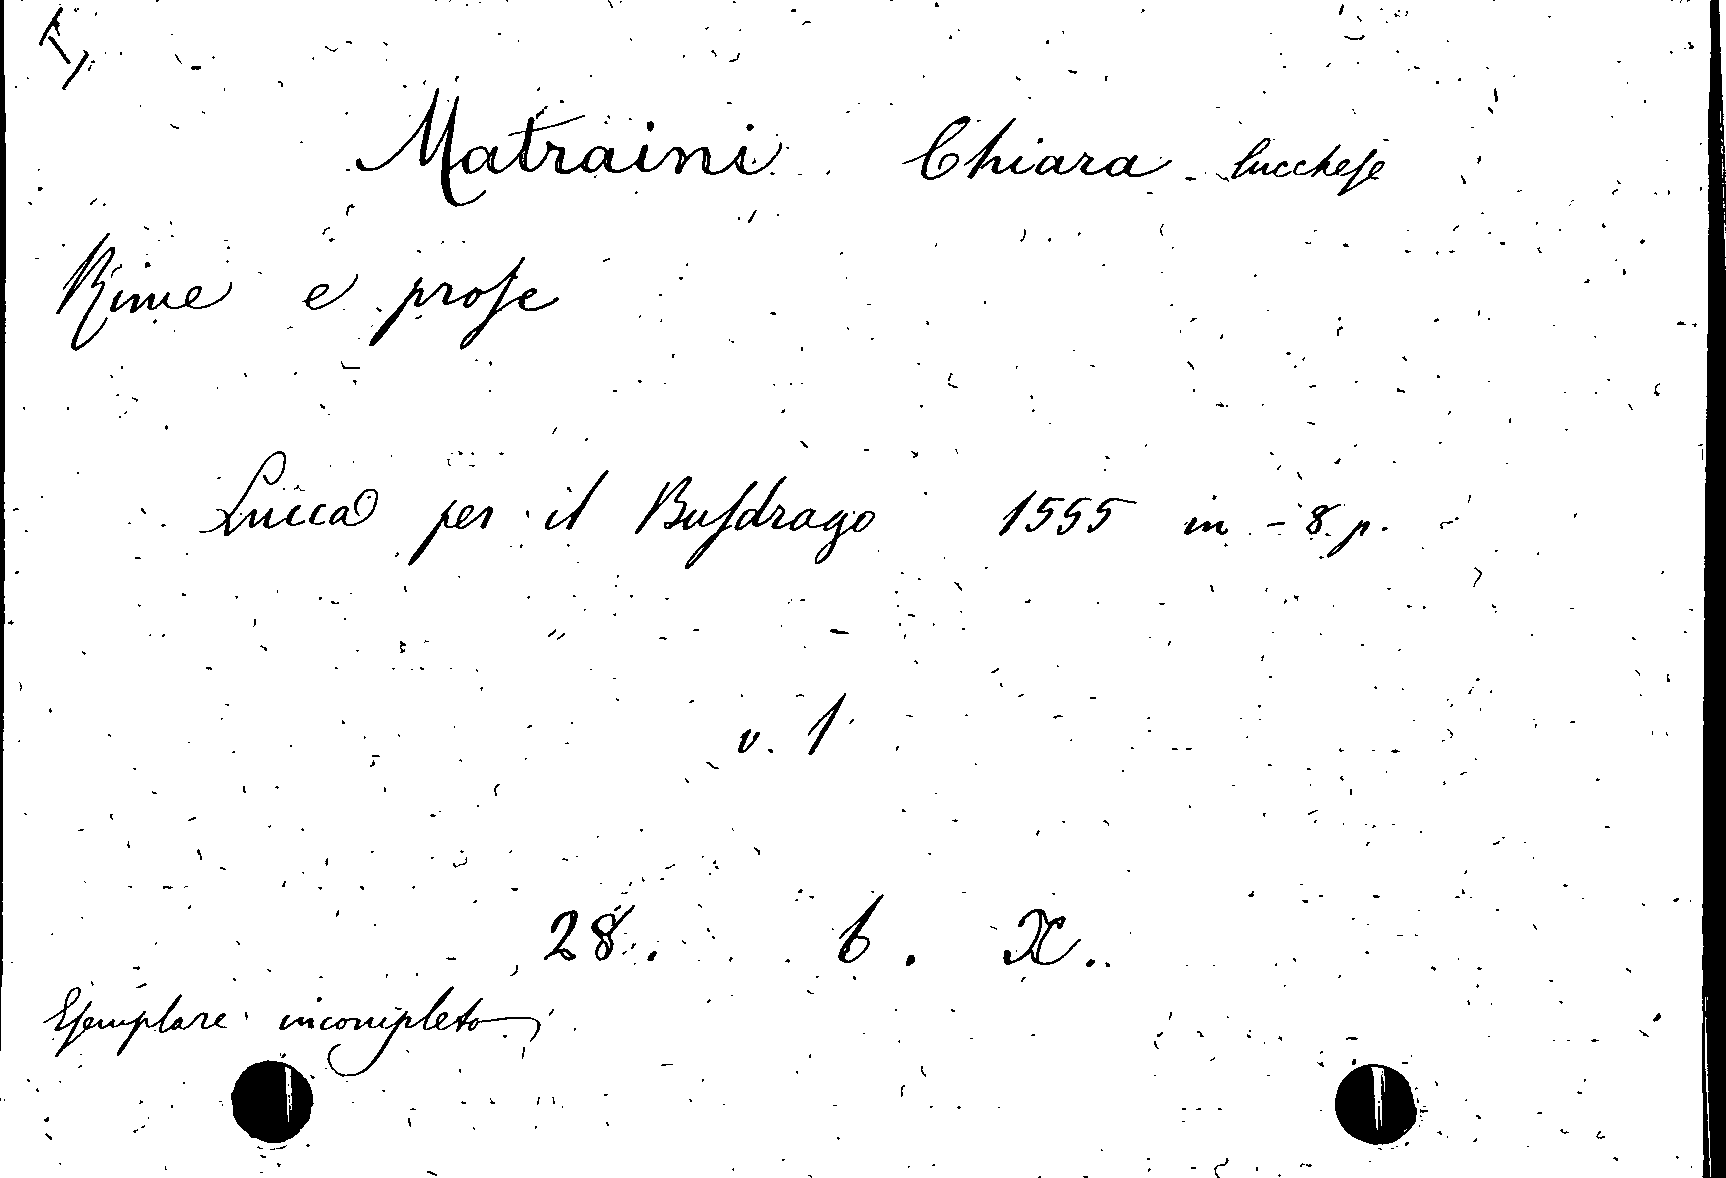 Matraini Chiara lucchese
Rime e prose
Lucca per il Busdrago 1555 in-8. p.
v. 1
28. b. X.
Esemplare incompleto